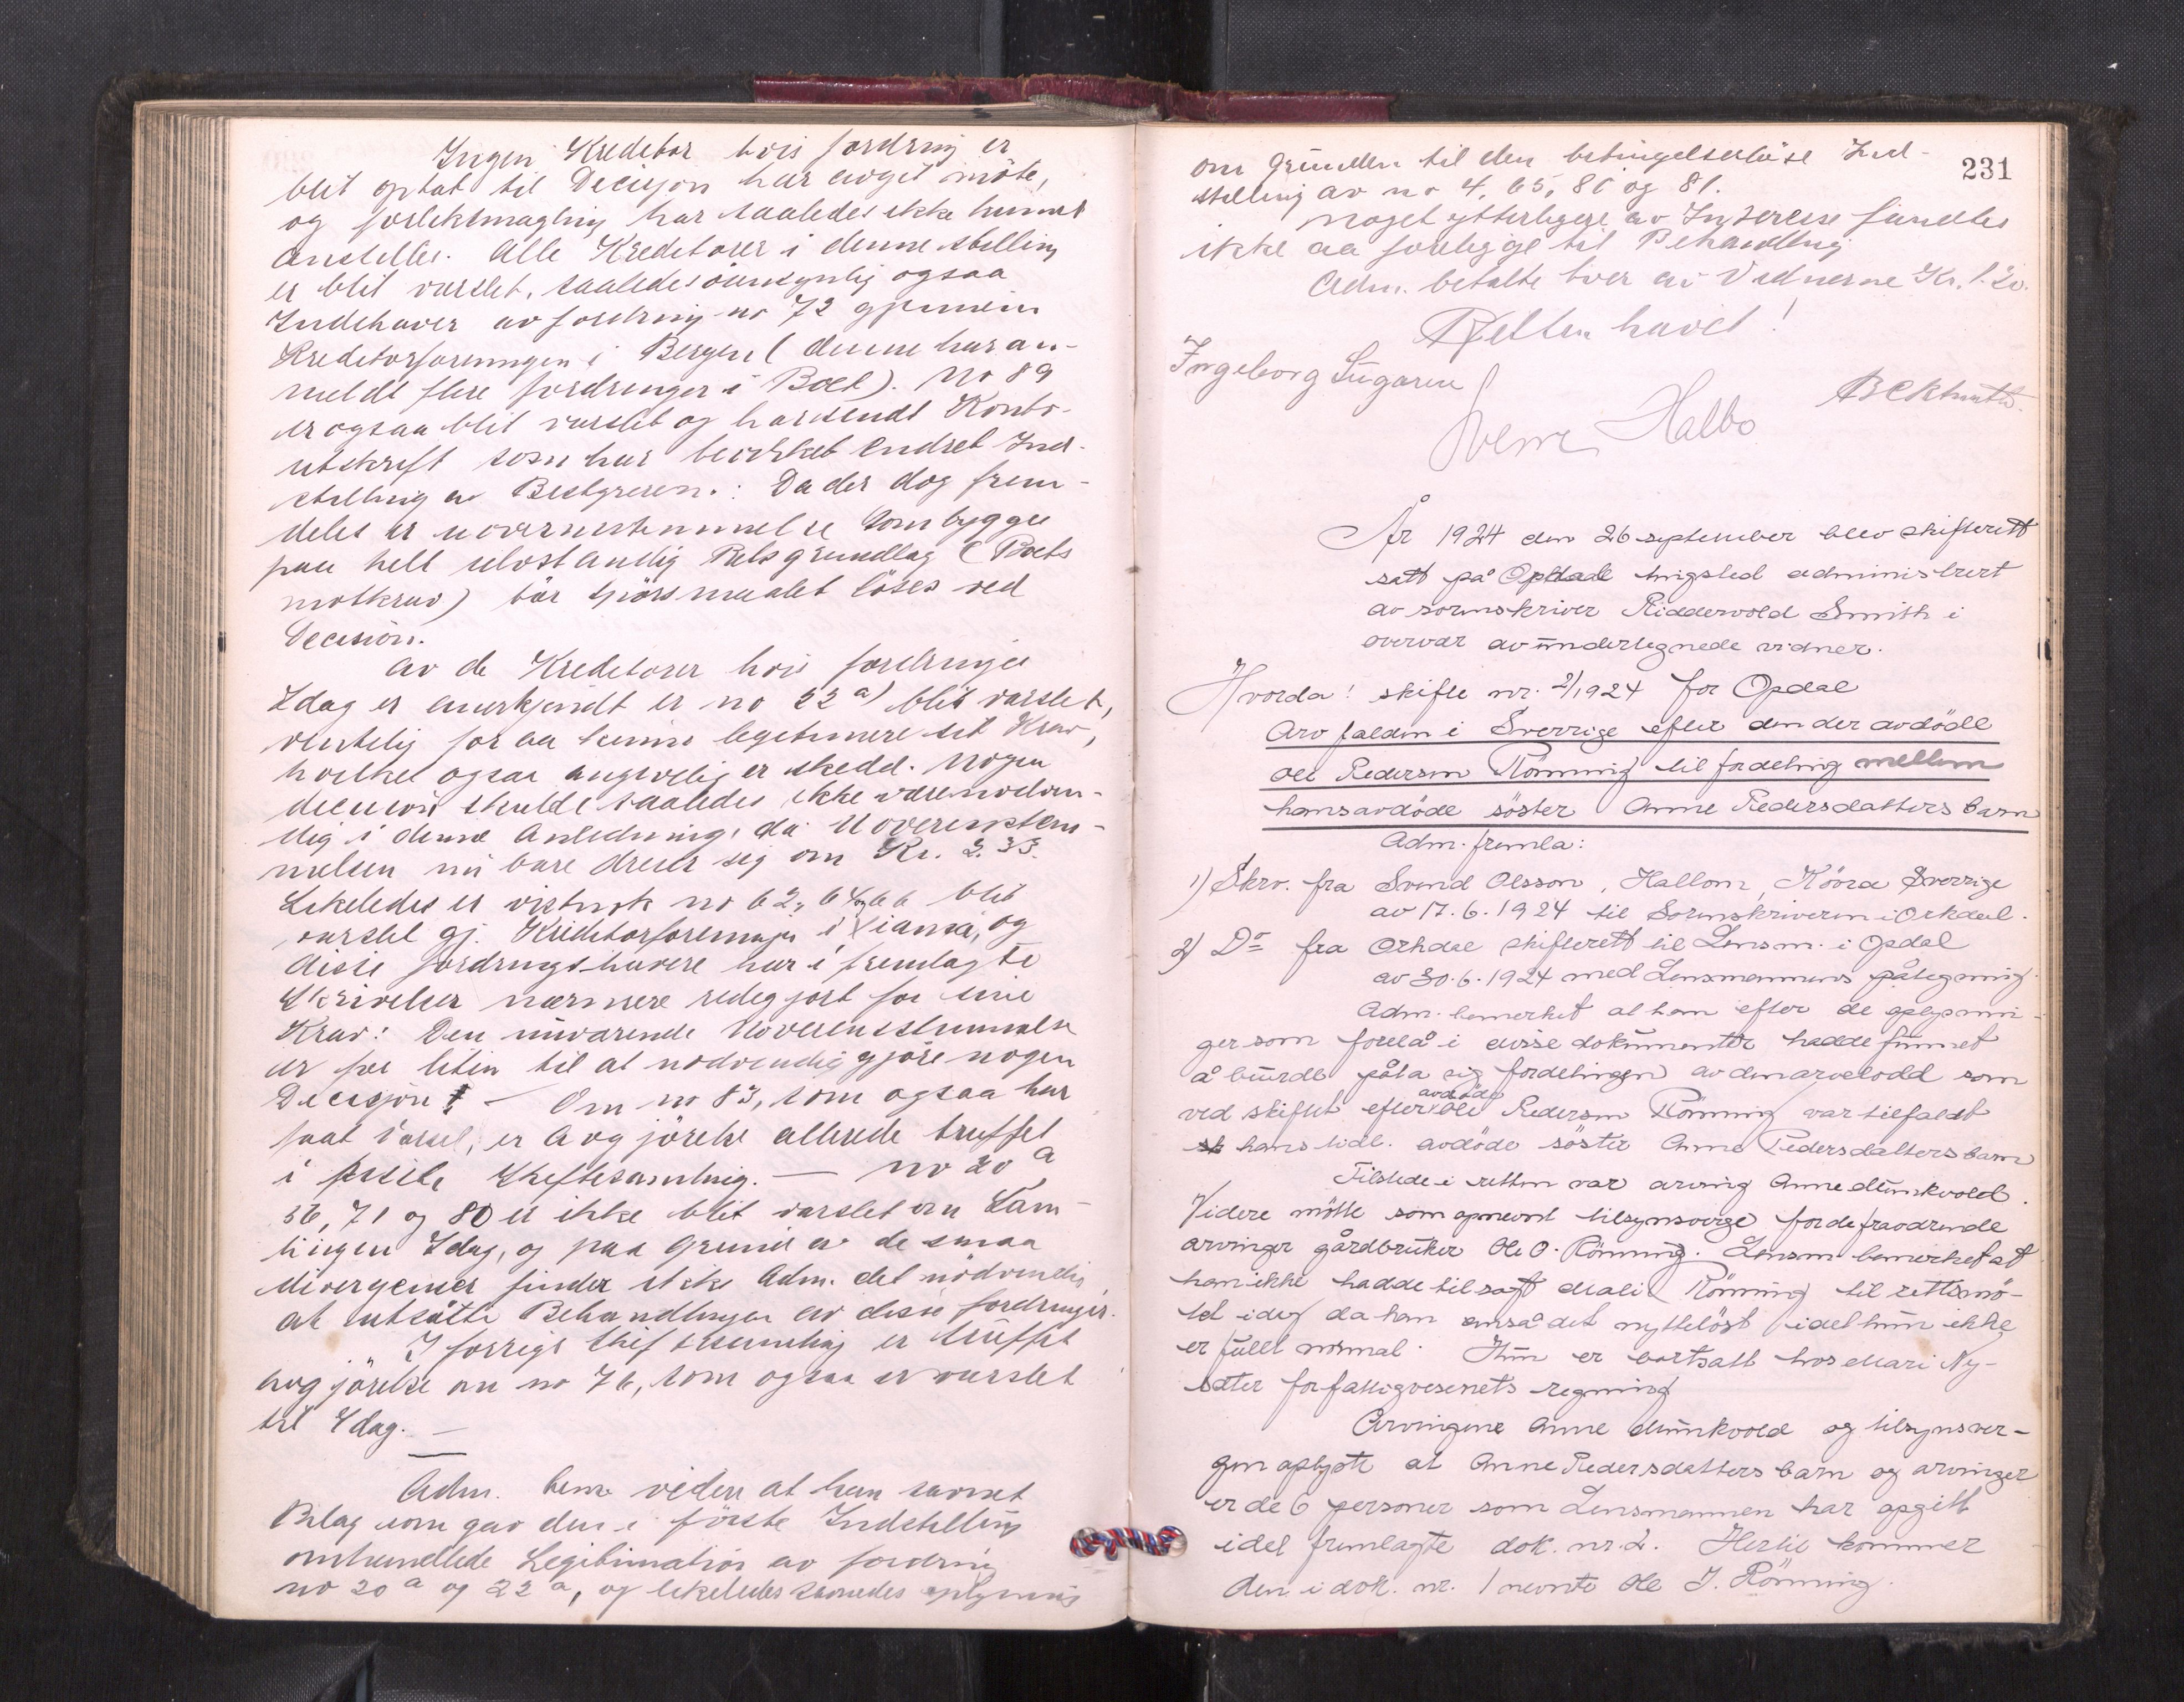 Ingen Kreditor hvis fordring er
blit optat til Decisjon har avgit möte,
og forliksmægling har saaledes ikke kunnet
anstilles. Alle Kreditorer i denne stilling
er blit varslet, saaledes ogsaa
Indehaver av fordring no 72 gjennem
Kreditorforeningen i Bergen (denne har an-
meldt flere fordringer i Boet). No 89
er ogsaa blit varslet og har sendt Konto-
utskrift som har bevirket endret Ind-
stilling av Bestyreren.: Da der dog frem-
deles er uoverenstemmelse som bygges
paa helt selvstændig Retsgrundlag (Boets
motkrav) bör spörsmaalet löses ved
Decision.
Av de Kreditorer hvis fordringer
Idag er anerkjendt er no 22 a) blit varslet,
for aa kunne legitimere sit Krav,
hvilket ogsaa er skedd. Nogen
decision skulde saaledes ikke være nödven-
dig i denne Anledning, da Uoverenstem-
melsen nu bare dreier sig om Kr. 2.33.
Likeledes er no 62, 64 og 66 blit
varslet gj. Kreditorforeningen i og
disse fordringshavere har i fremlagte
Skrivelser nærmere redegjort for sine
Krav: Den nuværende Uoverensstemmelse
er for liten til at nödvendiggjöre nogen
Decisjon. — Om no 83, som ogsaa har
faat Varsel, er Avgjörelse allerede truffet
i sidste Skiftesamling. — No 20 a
56, 71 og 80 er ikke blit varslet om Sam-
lingen Idag, og paa Grund av de smaa
divergenser finder ikke Adm. det nödvendig
at utsætte Behandlingen av disse fordringer.
I forrige Skiftesamling er truffet
avgjörelse om no 76, som ogsaa er varslet
til Idag. —
Adm. bem. videre at han savnet
Bilag som gav den i förste Indstilling
omhandlede Legitimation av fordring
no 20 a og 22 a, og likeledes savnedes oplysning
231
om Grunden til den betingelseslöse Ind-
stilling av no 4, 65, 80 og 81.
Noget ytterligere av Interesse fandtes
ikke aa foreligge til Behandling
Adm. betalte hver av Vidnerne Kr. 1.20.
Retten hævet!
Ingeborg
Halbo
År 1924 den 26 september blev skifterett
satt på Opdal tingsted administrert
av sorenskriver Riddervold Smith i
overvær av undertegnede vidner.
Hvorda! skifte nr. 2/1924 for Opdal
Arv falden i Sverrige efter den der avdöde
Ole Pedersen Rönning til fordeling mellem
hans avdöde söster Anne Pedersdatters barn
Adm. fremla:
1) Skrv. fra Svend Olsson, Hallom, Kövra Sverrige
av 17.6.1924 til Sorenskriveren i Orkdal.
2) Do fra Orkdal skifterett til Lensm. i Opdal
av 30.6.1924 med Lensmannens påtegning.
Adm. bemerket at han efter de oplysnin-
ger som forelå i disse dokumenter hadde funnet
å burde påta sig fordelingen av den arvelodd som
ved skiftet efter avdöde Ole Pedersen Rönning var tilfaldt
hans tidl. avdöde söster Anne Pedersdatters barn
Tilstede i retten var arving Anne Munkvold.
Videre mötte som opnevnt tilsynsverge for de fraværende
arvinger gårdbruker Ole O. Rönning. Lensm. bemerket at
han ikke hadde tilsagt Mali Rönning til rettsmö-
tet idag da han anså det nyttelöst idet hun ikke
er fullt normal. Hun er bortsatt hos Mari Ny-
sæter for fattigvesenets regning
Arvingene Anne Munkvold og tilsynsver-
gen oplyste at Anne Pedersdatters barn og arvinger
er de 6 personer som Lensmannen har opgitt
i det fremlagte dok. nr. 2. Hertil kommer
den i dok. nr. 1 nevnte Ole J. Rönning.